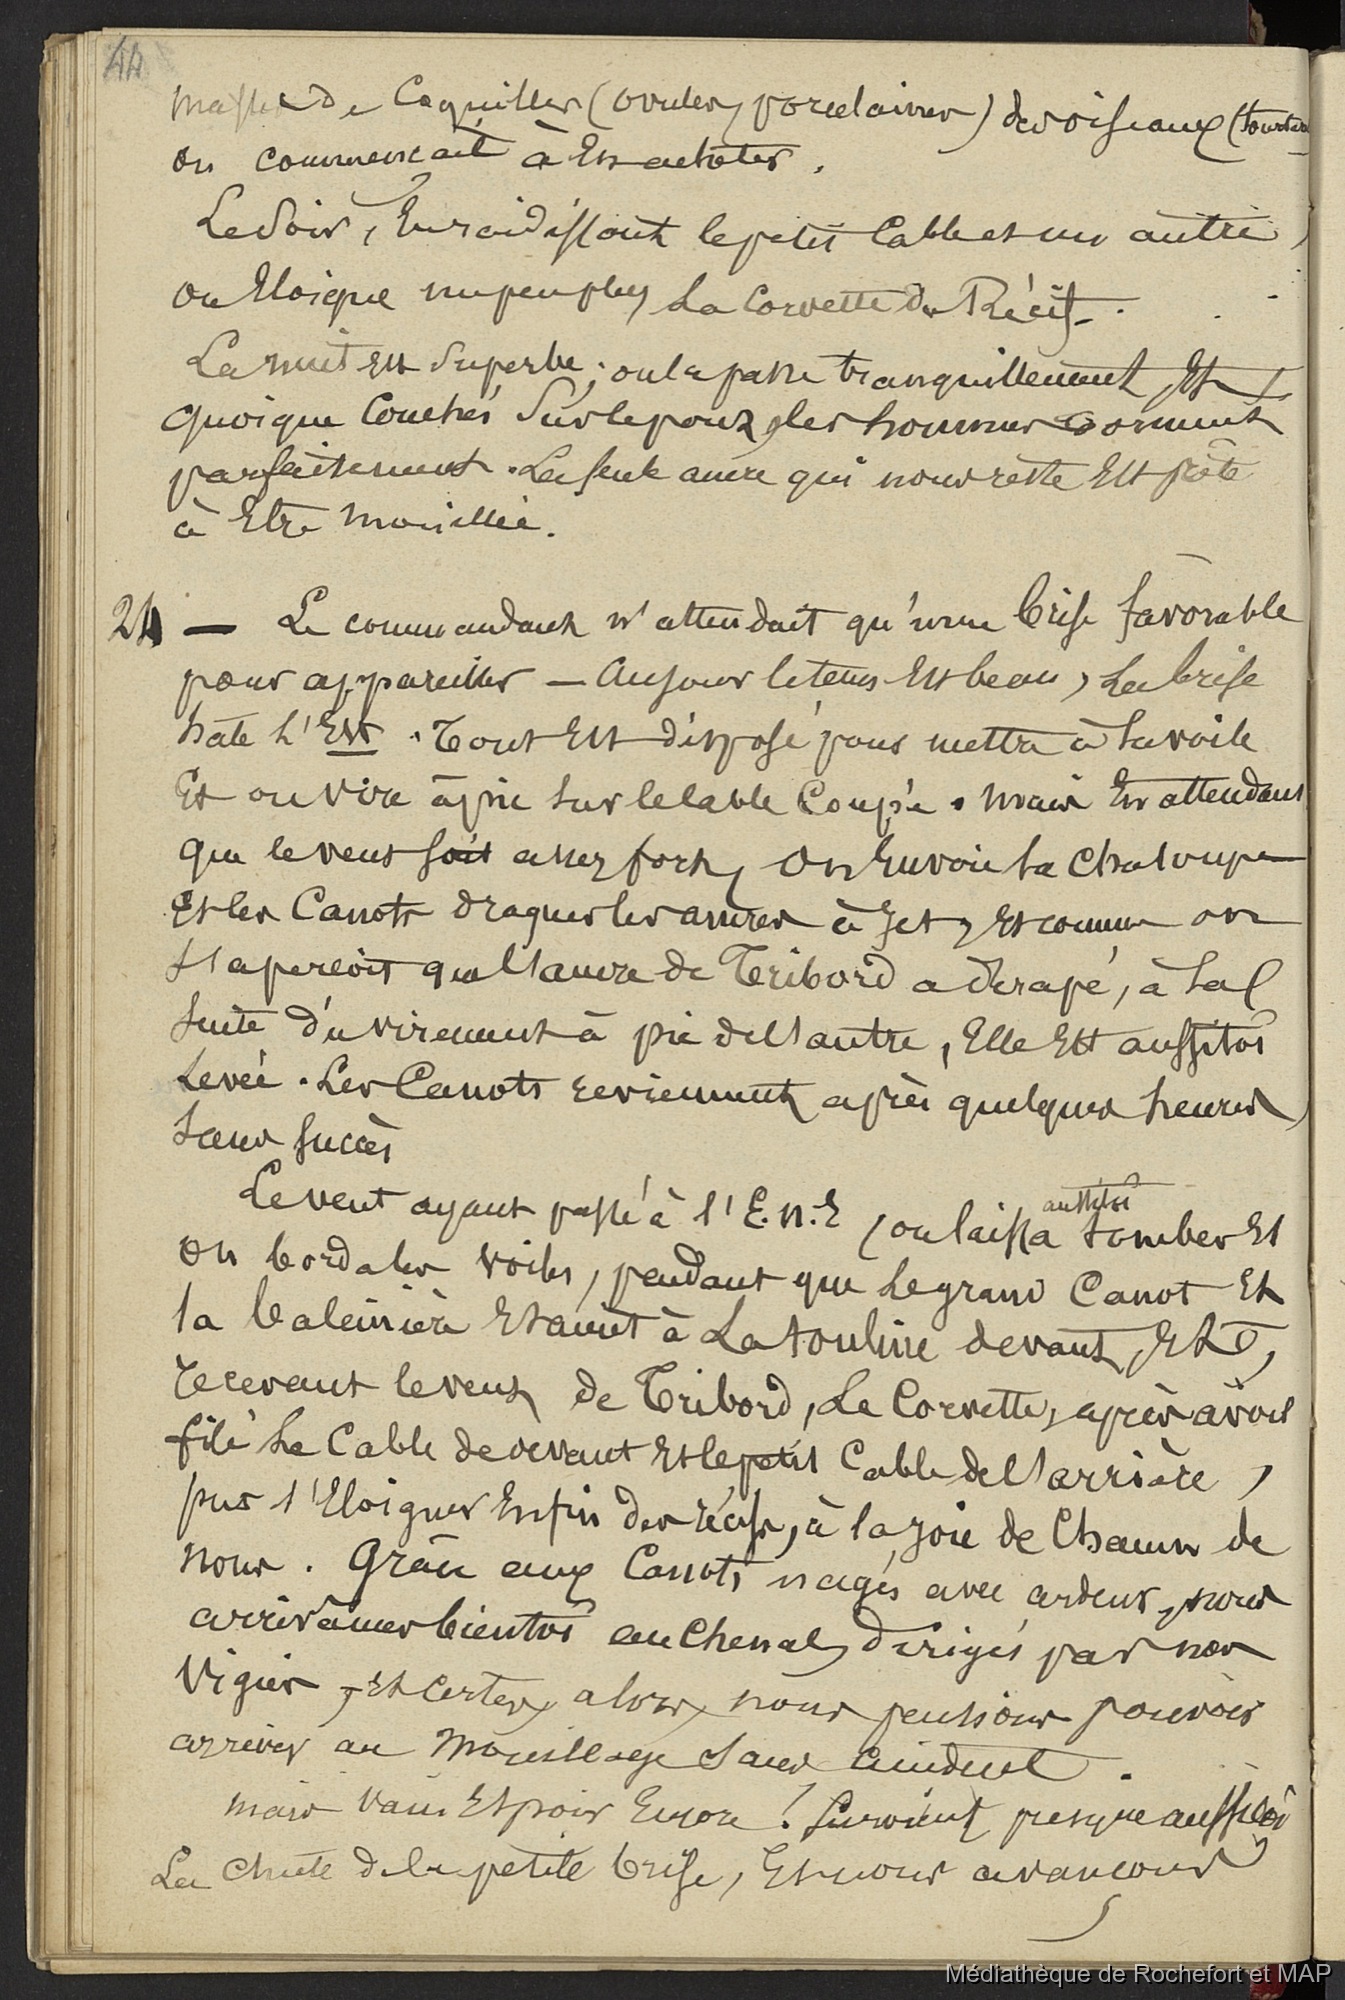 44
masses de Coquilles (ovules, porcelaines) des oiseaux (tourter
on commencait à En acheter.
Le Soir, En raidissant le petit Cable et un autre,
on Eloigne un peu plus La Corvette du Récif.
La nuit Est Superbe; on la passe tranquillement, Et
quoique Couchés Sur le pont, les hommes dorment
parfaitement. La seule ancre qui nous reste Est prête
à Etre Mouillée.
24 — Le commandant n'attendait qu'une brise favorable
pour appareiller — Au jour le tems Est beau, La brise
hâle l'Est. Tout Est disposé pour mettre à la voile
Et on vire à pic sur le Cable Coupé. Mais En attendant
que le vent soit assez fort, On Envoie la Chaloupe
Et les Canots draguer les ancres à Jet, Et comme on
s'apercoit que l'ancre de Tribord a dérapé, à la
suite du virement à pic de l'autre, Elle Est aussitôt
Levée. Les Canots reviennent après quelques heures,
sans succès
Le vent ayant passé à l'E.N.E, on laissa aussitôt tomber Et
On borda les voiles, pendant que Le grand Canot Et
la baleinière Etaient à La touline devant, Et,
recevant le vent de Tribord, La Corvette, après avoir
filé Le Cable de devant Et le petit Cable de l'arrière,
put s'Eloigner Enfin des récifs, à la joie de Chacun de
nous. Grâce aux Canots nagés avec ardeur, nous
arrivâmes bientôt au Chenal, dirigés par nos
Vigies, Et Certes, alors, nous pensions pouvoir
arriver au Mouillage sans accident.
Mais Vain Espoir Encore! Survient presque aussitôt
La chute de la petite brise, Et nous avancons
Médiathèque de Rochefort et MAP